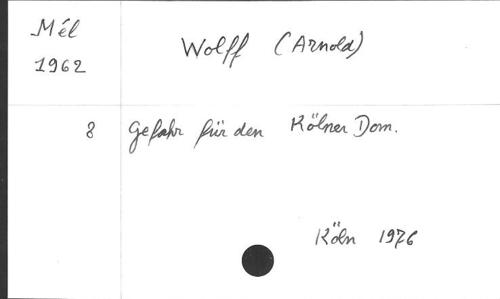 Mél
1962
Wolff (Arnold)
8 Gefahr für den Kölner Dom.
Köln 1976